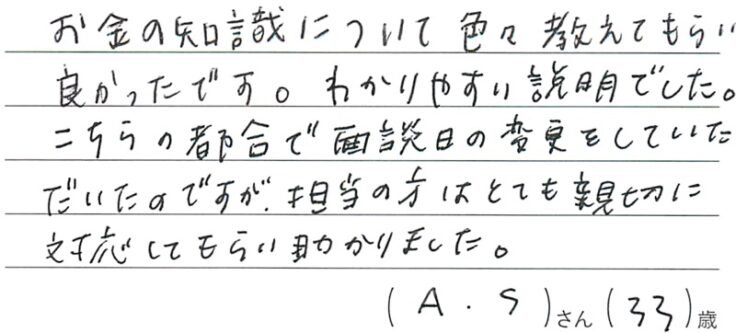 お金の知識について色々教えてもらい
良かったです。わかりやすい説明でした。
こちらの都合で面談日の変更をしていた
だいたのですが、担当の方はとても親切に
対応してもらい助かりました。
(A.S)さん(33)歳